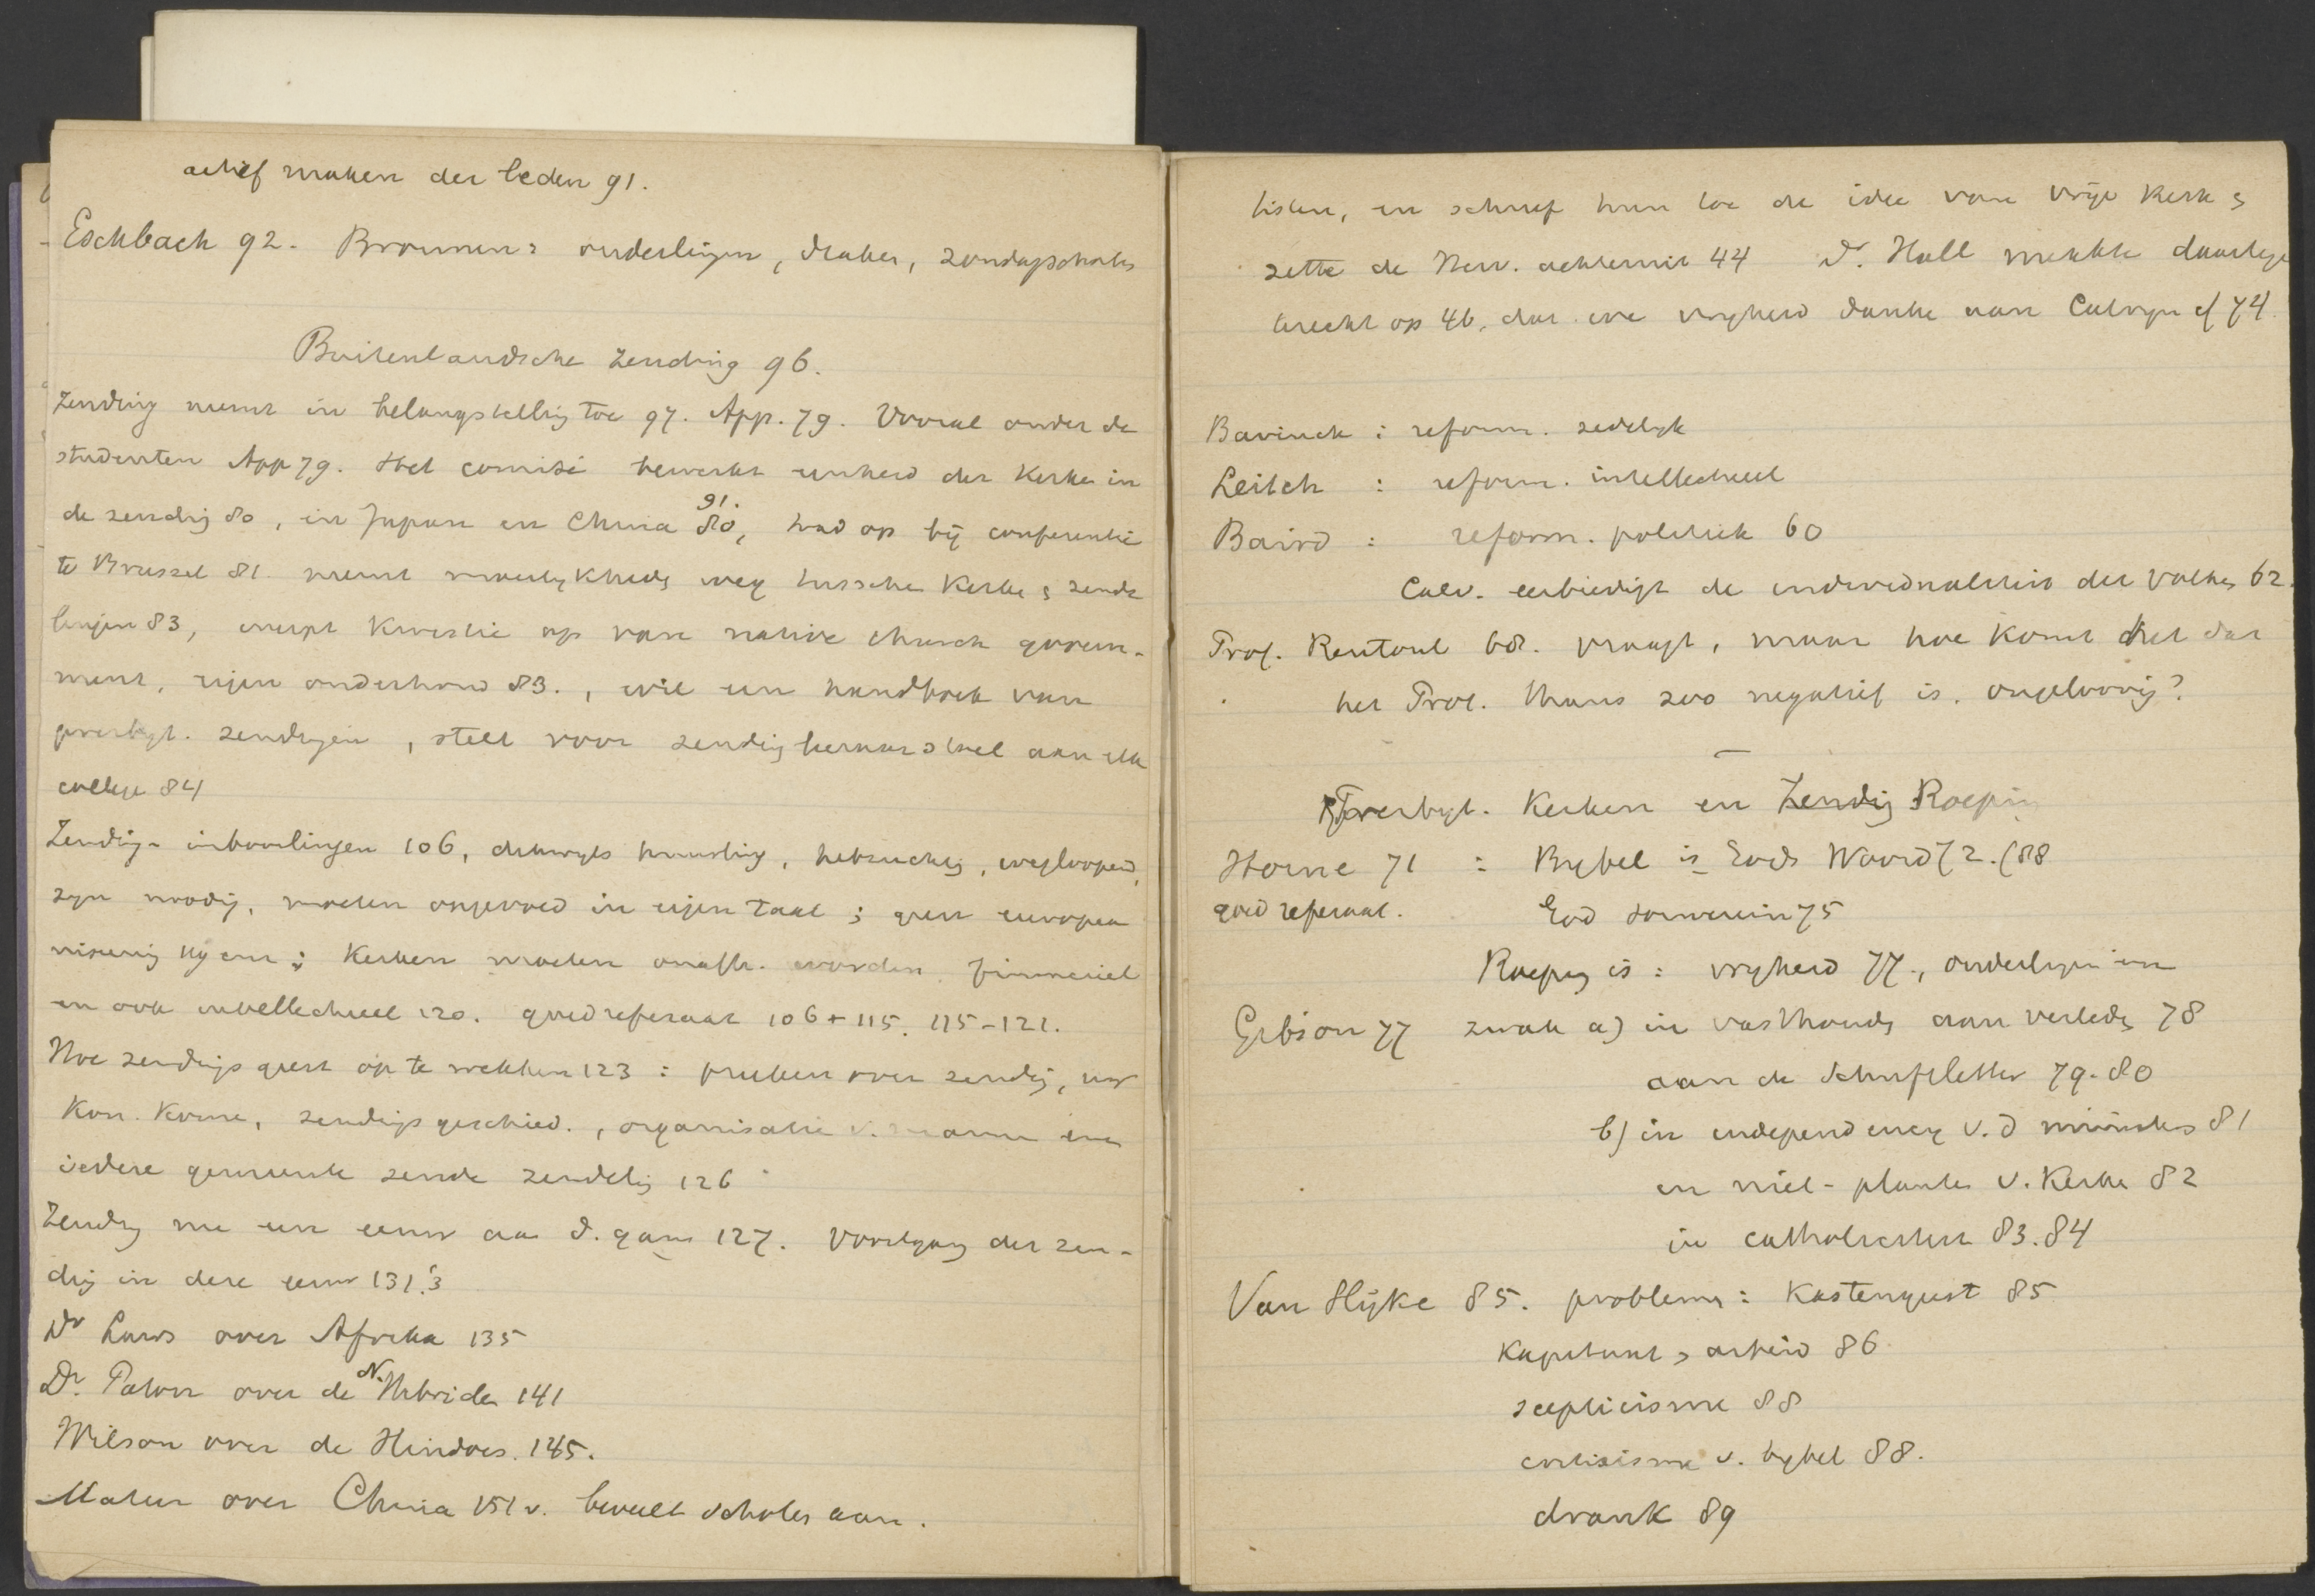 actief maken der leden 91.
Eschbach 92. Bronnen: ouderlingen, diaken, zondagscholen
Buitenlandsche Zending 96.
Zending neemt in belangstelling toe 97. App. 79. Vooral onder de
studenten App 79. Het comité bewerkt eenheid der Kerken in
de zending 80, in Japan en China 80, 91. trad op bij conferentie
te Brussel 81. neemt moeilykheden weg tusschen Kerken & zende
lingen 83, werpt kwestie op van native church govern-
ment, eigen onderhoud 83., wil een handboek van
presbyt. zendingen, stelt voor zending leeraarstoel aan elk
college 84
Zending - inboorlingen 106, dikwyls hebzuchtig, wegloopend,
zyn noodig, moeten opgevoed in eigen taal; geen europea
niseering 119 enz; Kerken moeten onafh. worden. financieel
en ook intellectueel 120. goed referaat 106 + 115. 115-121.
Hoe zendingsgeest op te wekken 123: preeken over zending,
Kon. Kome, zendingsgeschied., organisatie v. mannen en
iedere gemeente zende zendeling 126
Zending nu een eeuw aan d. gang 127. Voortgang der zen-
ding in deze eeuw 131.'3
Dr Laws over Afrika 135
Dr. Paton over de N. Hebriden 141
Wilson over de Hindoes. 145.
Mateer over China 151 v. beveelt scholen aan.
tisten, en schreef hun toe de idee van vrije Kerk &
zette de Herv. achteruit 44 Dr. Hall merkte daartegen
terecht op 46, dat we vryheid danken aan Calvyn cf 74.
Bavinck : reform. zedelyk
Leitch : reform. intellectueel
Baird : reform. politiek 60
Calv. eerbiedigt de individualiteit der volken 62.
Prof. Rentoul 68. vraagt, maar hoe komt het dat
het Prot. thans zoo negatief is, ongeloovig?
Presbyt. Kerken en Zending Roeping
Horne 71 : Bybel is Gods Woord 72. (88
goed referaat. God souverein 75
Roeping is : vryheid 77., ouderlingen en
Gibson 77 zwak a) in vasthouden aan verleden 78
aan de Schriftletter 79-80
b) in independency v. d ministers 81
en niet - planten v. Kerken 82
in catholiciteit 83.84
Van Hÿke 85. problemen: Kastengeest 85
Kapitaal & arbeid 86
scepticisme 88
critisisme v. bybel 88.
drank 89